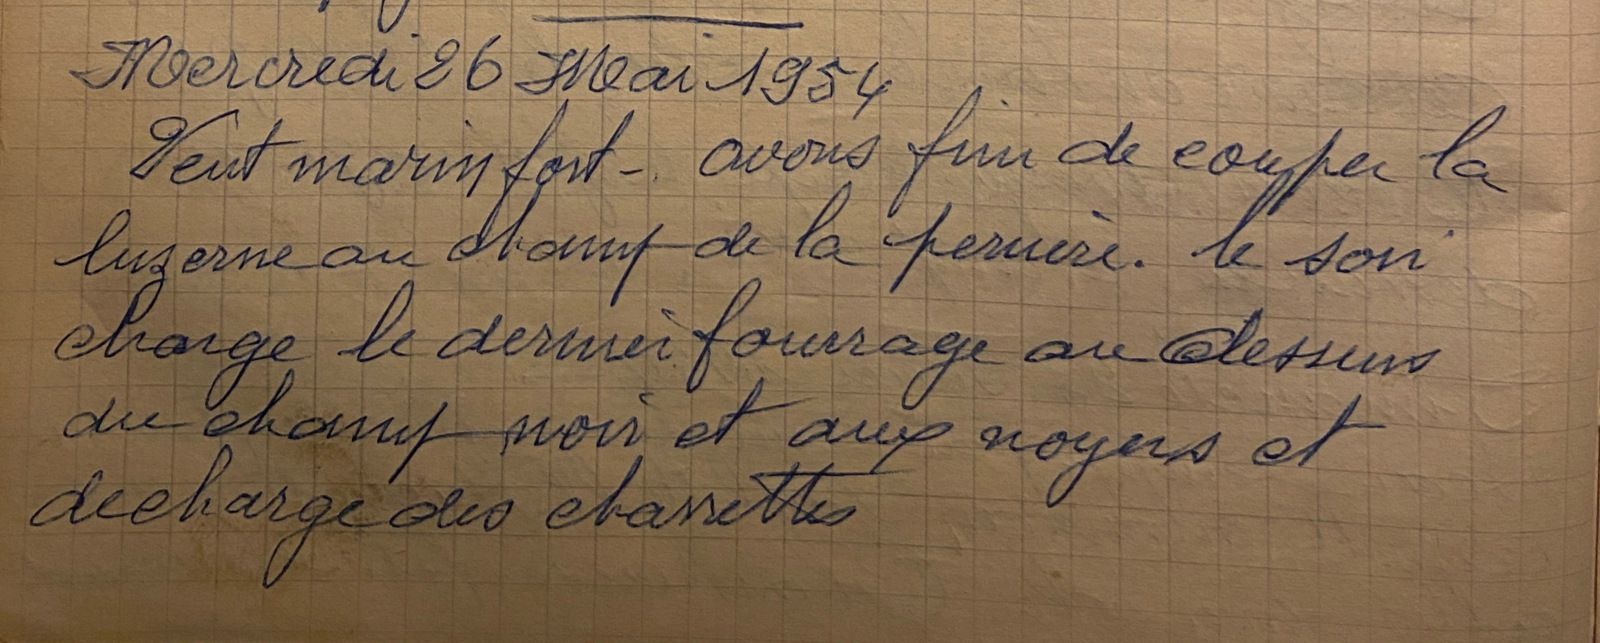 Mercredi 26 Mai 1954
Vent marin fort -. avons fini de couper la
luzerne au champ de la perrière. le soir
charge le dernier fourrage au dessus
du champ noir et aux noyers et
decharge des charrettes